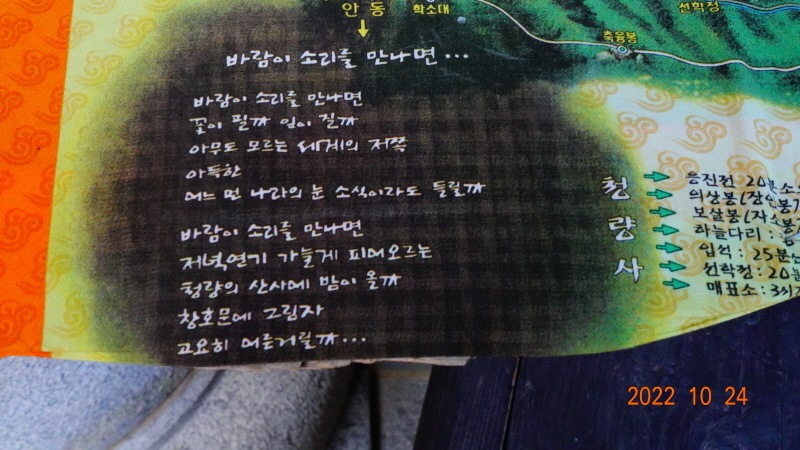 안동
학소대
선학정
축융봉
바람이 소리를 만나면...
바람이 소리를 만나면
꽃이 필까 잎이 질까
아무도 모르는 세계의 저쪽
아득한
어느 먼 나라의 눈 소식이라도 들릴까
바람이 소리를 만나면
저녁연기 가늘게 피어오르는
청량의 산사에 밤이 올까
창호문에 그림자
고요히 어른거릴까...
청량사
응진전 20분소요
의상봉(장인봉)
보살봉(자소봉)
하늘다리 :
입석 : 25분
선학정 : 20분
매표소 : 3시간
2022 10 24